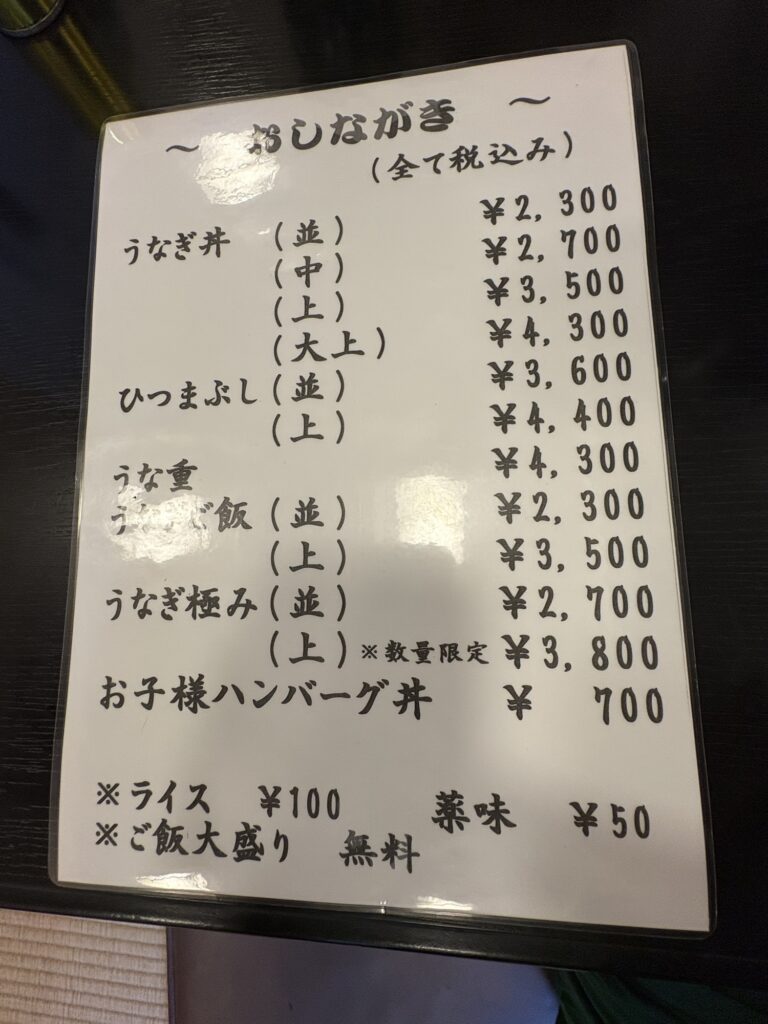 ～ おしながき ～
(全て税込み)
うなぎ丼 (並) ¥2,300
(中) ¥2,700
(上) ¥3,500
(大上) ¥4,300
ひつまぶし (並) ¥3,600
(上) ¥4,400
うな重 ¥4,300
ご飯 (並) ¥2,300
(上) ¥3,500
うなぎ極み (並) ¥2,700
(上) ※数量限定 ¥3,800
お子様ハンバーグ丼 ¥ 700
※ライス ¥100 薬味 ¥50
※ご飯大盛り 無料